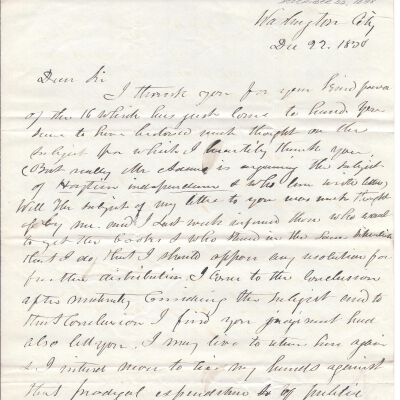 Washington City
Dec 22. 1838
Dear Sir
I thank you for your kind favor
of the 16 which has just come to hand you
seem to have bestowed much thought on the
subject for which I heartily thank you
(But really Mr Adams is arguing the subject
of Haytien independence & who can write letters)
Well the subject of my letter to you was much thought
of by me. and I last week informed those who want
to get the books & who stand in the same situation
that I do, that I should oppose any resolution for
further distribution I came to the conclusion
after maturely considering the subject and to
that conclusion I find your judgment had
also led you. I may live to when here again
& I intend never to tie my hands against
that prodigal expenditure of public